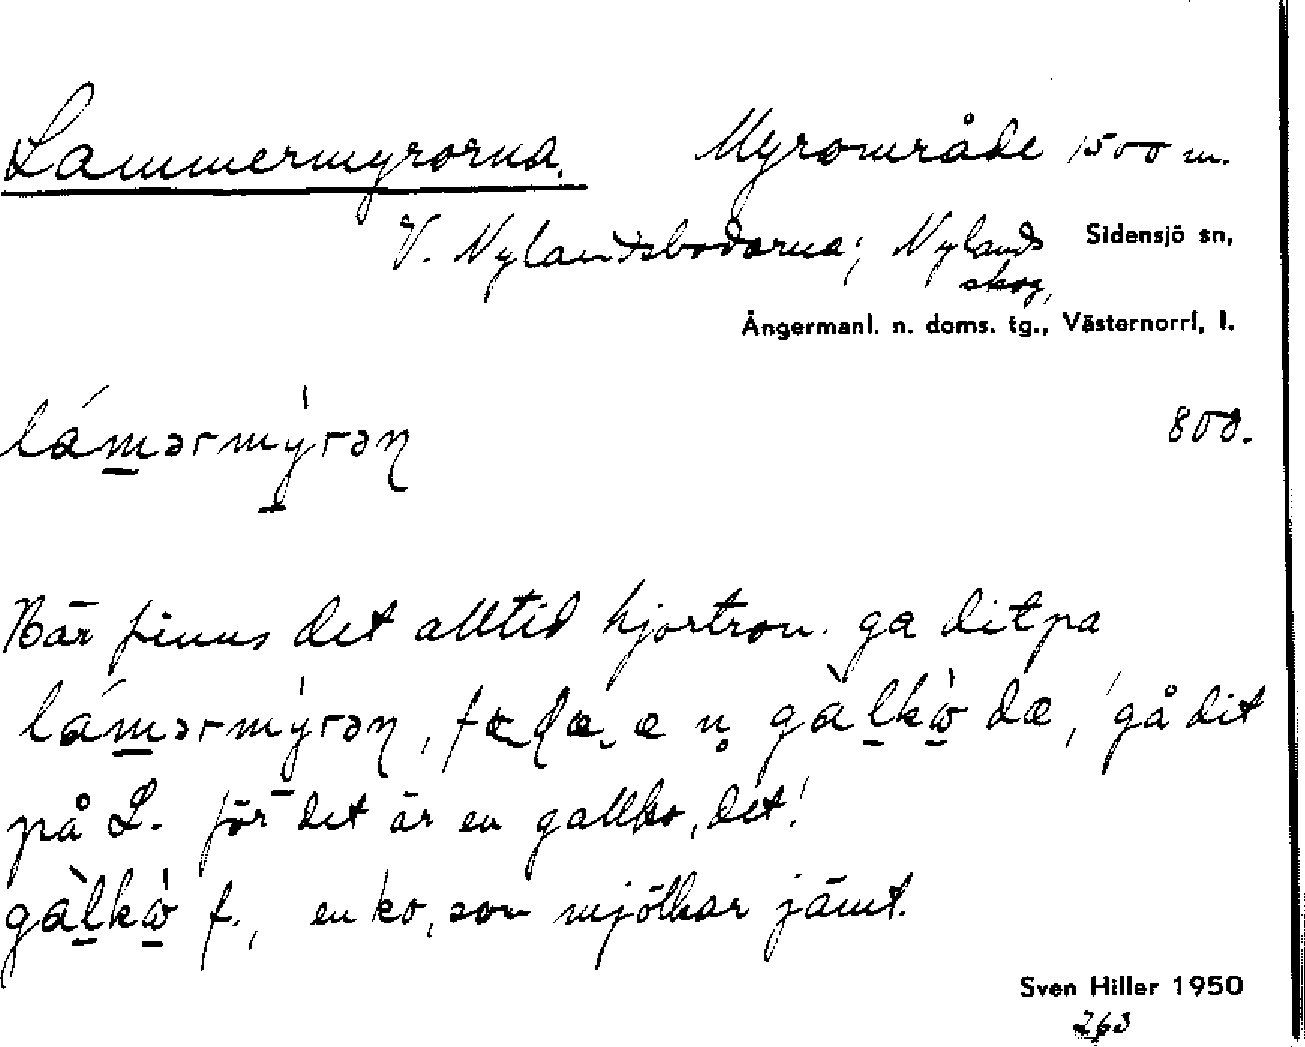 Lammermyrorna. Myrområde 1500 m.
V. Nylandsbodarna; Nylands Sidensjö sn,
skog,
Ångermanl. n. doms. tg., Västernorrl, l.
lámərmýrəɳ 800.
Här finns det alltid hjortron. ga ditpa
lámərmýrəɳ, gàlkò dæ, 'gå dit
på L. för det är en gallko, det!
gàlkò f., en ko, som mjölkar jämt.
Sven Hiller 1950
263